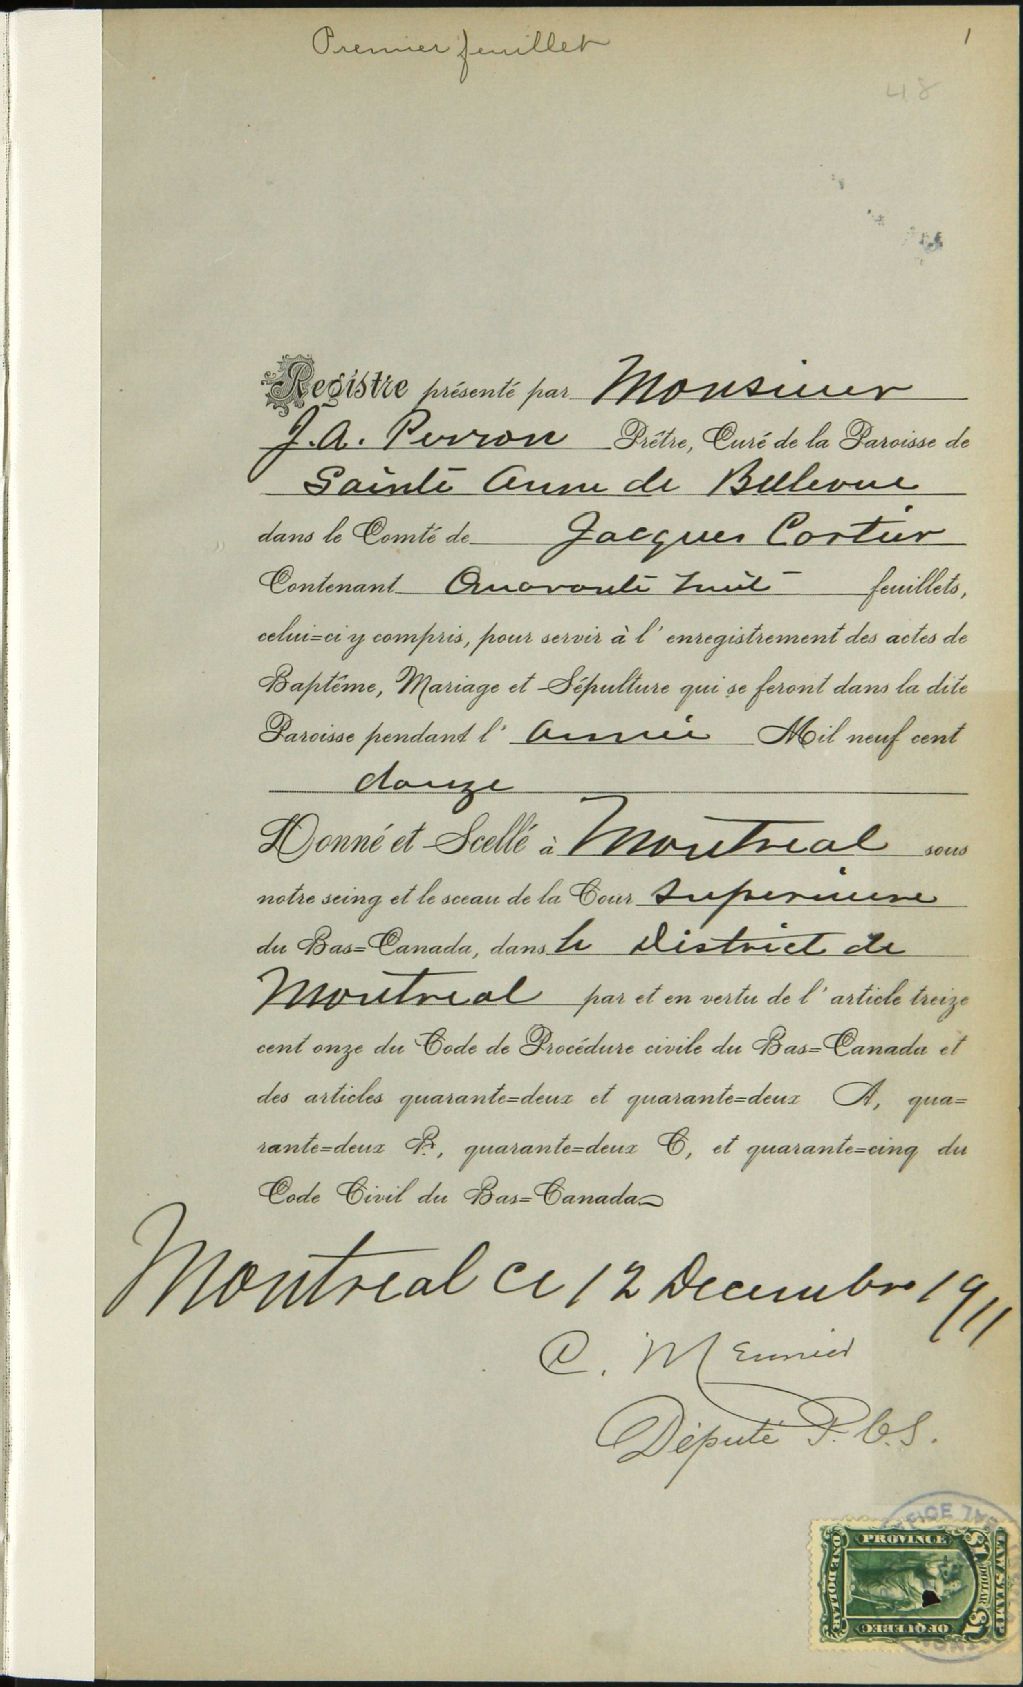 Premier feuillet
1
48
Registre présenté par Monsieur
J. A. Perron Prêtre, Curé de la Paroisse de
Sainte Anne de Bellevue
dans le Comté de Jacques Cartier
Contenant Quarante huit feuillets,
celui=ci y compris, pour servir à l'enregistrement des actes de
Baptême, Mariage et Sépulture qui se feront dans la dite
Paroisse pendant l'année Mil neuf cent
douze
Donné et Scellé à Montreal sous
notre seing et le sceau de la Cour Superieure
du Bas=Canada, dans le District de
Montreal par et en vertu de l'article treize
cent onze du Code de Procédure civile du Bas=Canada et
des articles quarante=deux et quarante=deux A, qua=
rante=deux B, quarante=deux C, et quarante=cinq du
Code Civil du Bas=Canada
Montreal ce 12 Decembre 1911
C. Meunier
Député P. C. S.
PROVINCE
OF QUEBEC
ONE DOLLAR
$1 DOLLAR $1
LAW STAMP